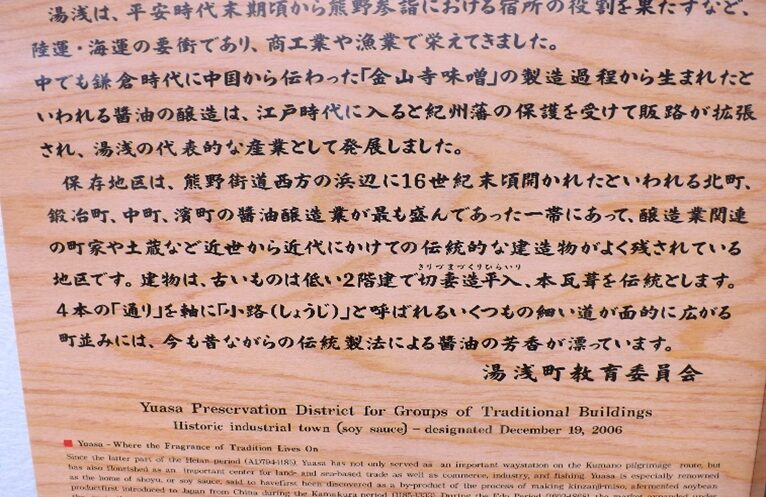 湯浅は、平安時代末期頃から熊野参詣における宿所の役割を果たすなど、
陸運・海運の要衝であり、商工業や漁業で栄えてきました。
中でも鎌倉時代に中国から伝わった「金山寺味噌」の製造過程から生まれたと
いわれる醤油の醸造は、江戸時代に入ると紀州藩の保護を受けて販路が拡張
され、湯浅の代表的な産業として発展しました。
保存地区は、熊野街道西方の浜辺に16世紀末頃開かれたといわれる北町、
鍛冶町、中町、濱町の醤油醸造業が最も盛んであった一帯にあって、醸造業関連
の町家や土蔵など近世から近代にかけての伝統的な建造物がよく残されている
きりづまづくりひらいり
地区です。建物は、古いものは低い2階建で切妻造平入、本瓦葺を伝統とします。
4本の「通り」を軸に「小路(しょうじ)」と呼ばれるいくつもの細い道が面的に広がる
町並みには、今も昔ながらの伝統製法による醤油の芳香が漂っています。
湯浅町教育委員会
Yuasa Preservation District for Groups of Traditional Buildings
Historic industrial town (soy sauce) - designated December 19, 2006
Yuasa - Where the Fragrance of Tradition Lives On
Since the latter part of the Heian period (AD794-1185), Yuasa has not only served as an important waystation on the Kumano pilgrimage route, but
has also flourished as an important center for land- and sea-based trade as well as commerce, industry, and fishing. Yuasa is especially renowned
as the home of shoyu, or soy sauce, said to have first been discovered as a by-product of the process of making kinzanji-miso, a fermented soybean
product first introduced to Japan from China during the Kamakura period (1185-1333). During the Edo Period